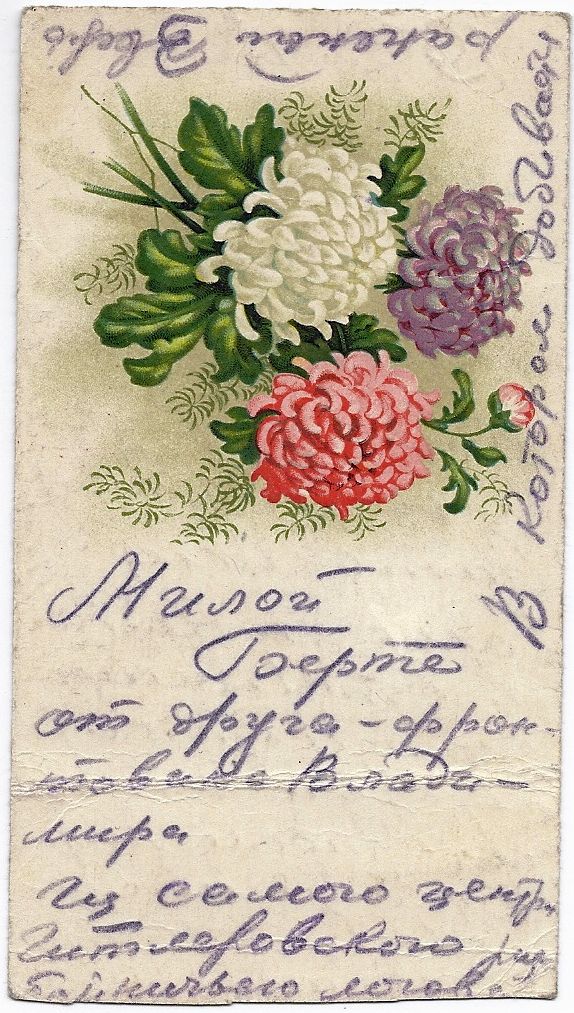 Милой
Берте
от друга - фрон-
товика Влади-
мира
Из самого центра
Гитлеровского раз
бойничьего логова
В котором добивают
раненый Зверь